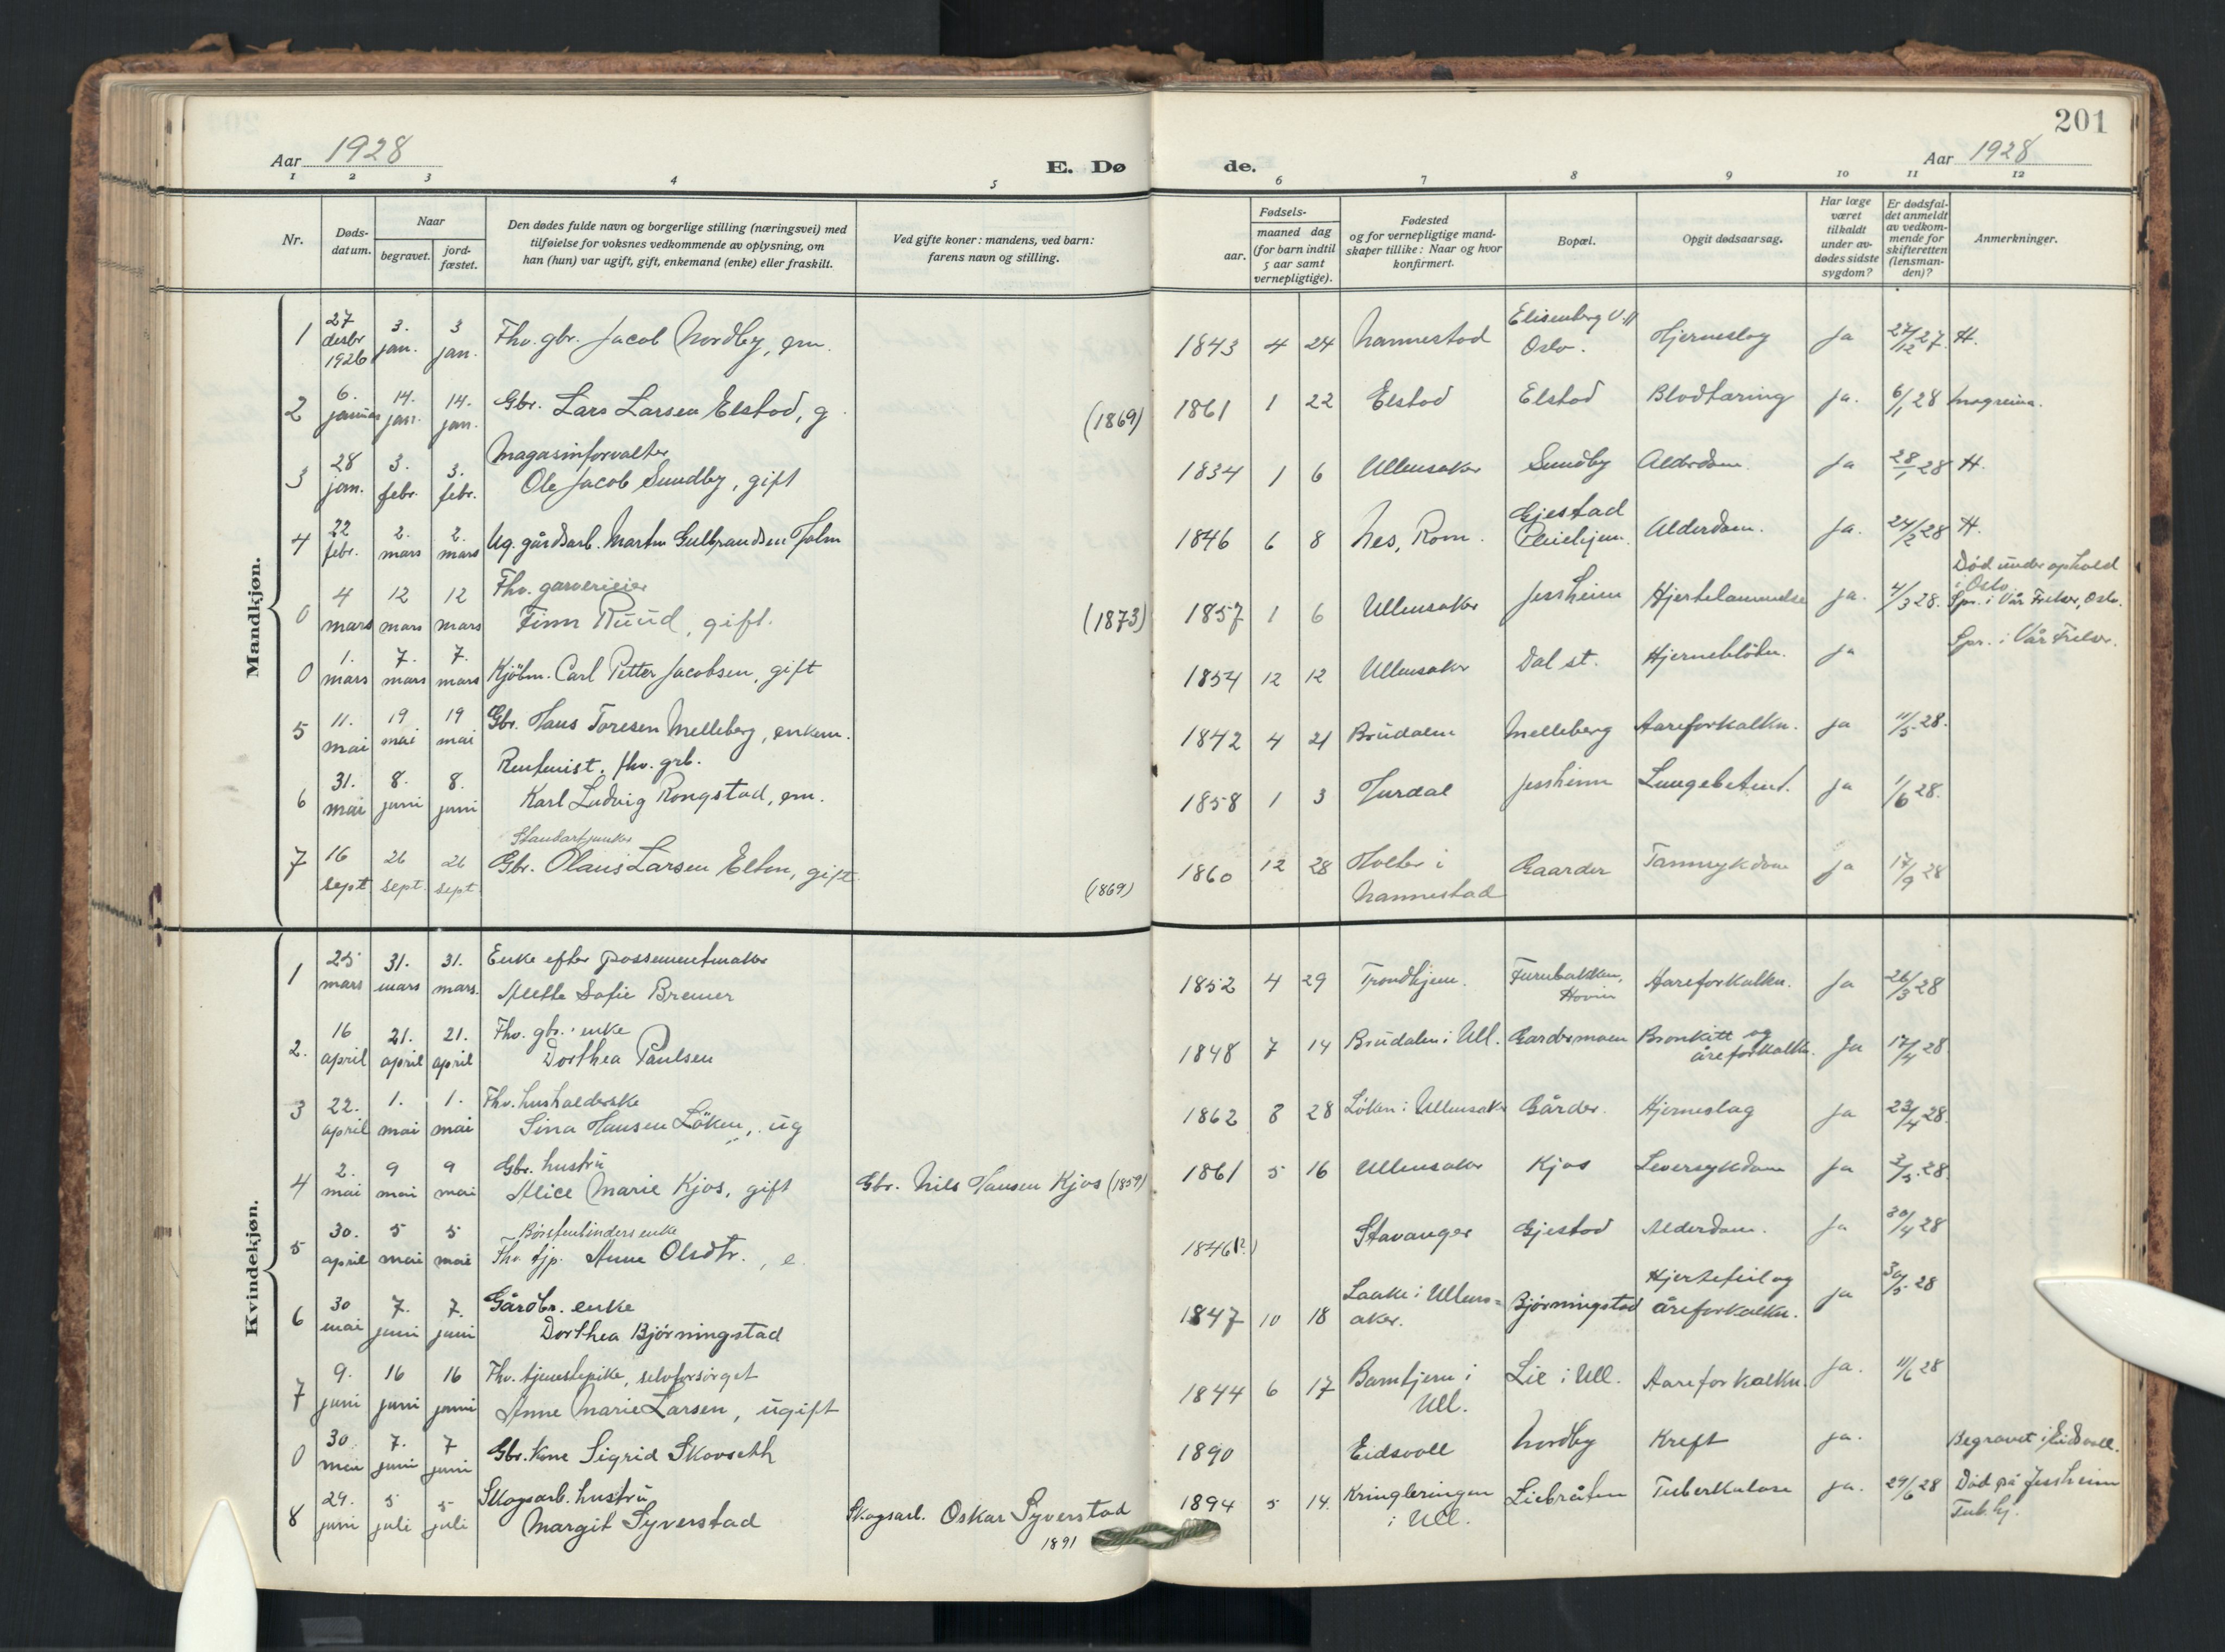 201
Aar 1928
E. Døde.
Aar 1928
1 2 3 4 5 6 7 8 9 10 11 12
Nr.
Døds-datum.
Naar
begravet.
jord-fæstet.
Den dødes fulde navn og borgerlige stilling (næringsvei) med
tilføielse for voksnes vedkommende av oplysning, om
han (hun) var ugift, gift, enkemand (enke) eller fraskilt.
Ved gifte koner: mandens, ved barn:
farens navn og stilling.
Fødsels-
aar.
maaned dag
(for barn indtil
5 aar samt
vernepligtige).
Fødested
og for vernepligtige mand-
skaper tillike: Naar og hvor
konfirmert.
Bopæl.
Opgit dødsaarsag.
Har læge
været
tilkaldt
under av-
dødes sidste
sygdom?
Er dødsfal-
det anmeldt
av vedkom-
mende for
skifteretten
(lensman-
den)?
Anmerkninger.
Mandkjøn.
1 27 desbr 1926 3. jan. 3 jan. Fhv. gbr. Jacob Nordby, em. 1843 4 24 Nannestad Elisenberg v. 11 Oslo. Hjerneslag Ja 27/12 27. H.
2 6. januar 14. jan. 14. jan. Gbr. Lars Larsen Elstad, g. (1869) 1861 1 22 Elstad Elstad Blodtæring ja. 6/1 28
3 28 jan. 3. febr. 3. febr. Magasinforvalter
Ole Jacob Sundby, gift 1834 1 6 Ullensaker Sundby Alderdom Ja 28/1 28 H.
4 22 febr. 2. mars 2. mars Ug. gårdsarb. Martin Gulbrandsen Holm 1846 6 8 Nes, Rom. Gjestad Pleiehjem. Alderdom. Ja. 24/2 28 H.
0 4 mars 12 mars 12 mars Fhv. garverieier
Finn Ruud, gift. (1873) 1857 1 6 Ullensaker Jessheim Hjertelammelse ja. 4/3 28. Død under ophold
i Oslo
Spr. i Vår Frelser, Oslo.
0 1. mars 7. mars 7. mars Kjöbm. Carl Petter Jacobsen, gift 1854 12 12 Ullensaker Dal st. Hjerneblödn. Ja Spr. i Vår Frelser.
5 11. mai 19 mai 19 mai Gbr. Hans Toresen Melleberg, enkem. 1842 4 21 Brudalen Melleberg Aareforkalkn. Ja 11/5 28.
6 31. mai 8. juni 8. juni Rentenist. fhv. grb.
Karl Ludvig Rongstad, em. 1858 1 3 Hurdal Jessheim Lungebetend. Ja 1/6 28.
7 16 sept 26 sept. 26 sept Standartjunker
Gbr. Olaus Larsen Elton, gift (1869) 1860 12 28 Holter i Nannestad Gaarder Tarmsykdom Ja 17/9 28
Kvindekjøn.
1 25 mars 31. mars 31. mars. Enke efter possementmaker
Mette Sofie Bremer 1852 4 29 Trondhjem. Furubakken, Hovin Aareforkalkn. Ja 26/3 28
2. 16 april 21. april 21. april Fhv. gbr. enke
Dorthea Paulsen 1848 7 14 Brudalen i Ull. Gardermoen Bronkitt og åreforkalkn. Ja 17/4 28
3 22. april 1. mai 1. mai Fhv. husholderske
Sina Hansen Löken, ug 1862 8 28 Löken i Ullensaker Gårder. Hjerneslag Ja 23/4 28.
4 2. mai 9 mai 9 mai Gbr. hustru
Alice Marie Kjos, gift Gbr. Nils Hansen Kjos (1859) 1861 5 16 Ullensaker Kjos Leversykdom Ja 3/5 28.
5 30. april 5 mai 5 mai Børstenbinders enke
Fhv. tjp. Anne Olsdtr., e. 1846 (?) Stavanger Gjestad Alderdom. Ja 30/4 28
6 30 mai 7. juni 7. juni Gårdbr. enke
Dorthea Bjørningstad 1847 10 18 Laake i Ullens=
aker. Bjørningstad Hjertefeil og
åreforkalkn. Ja 30/5 28
7 9. juni 16 juni 16 juni Fhv. tjenestepike, selvforsörget
Anne Marie Larsen, ugift 1844 6 17 Bamtjern i
Ull. Lie i Ull. Aareforkalkn. Ja. 11/6 28
0 30. mai 7. juni 7 juni Gbr. kone Sigrid Skovseth 1890 Eidsvoll Nordby Kreft ja. Begravet i Eidsvoll.
8 29. juni 5 juli 5 juli Skogsarb. hustru
Margit Syverstad Skogsarb. Oskar Syverstad
1891 1894 5 14. Kringleringen
i Ull. Liebråten Tuberkulose ja. 29/6 28 Død på Jessheim
Tub. hj.